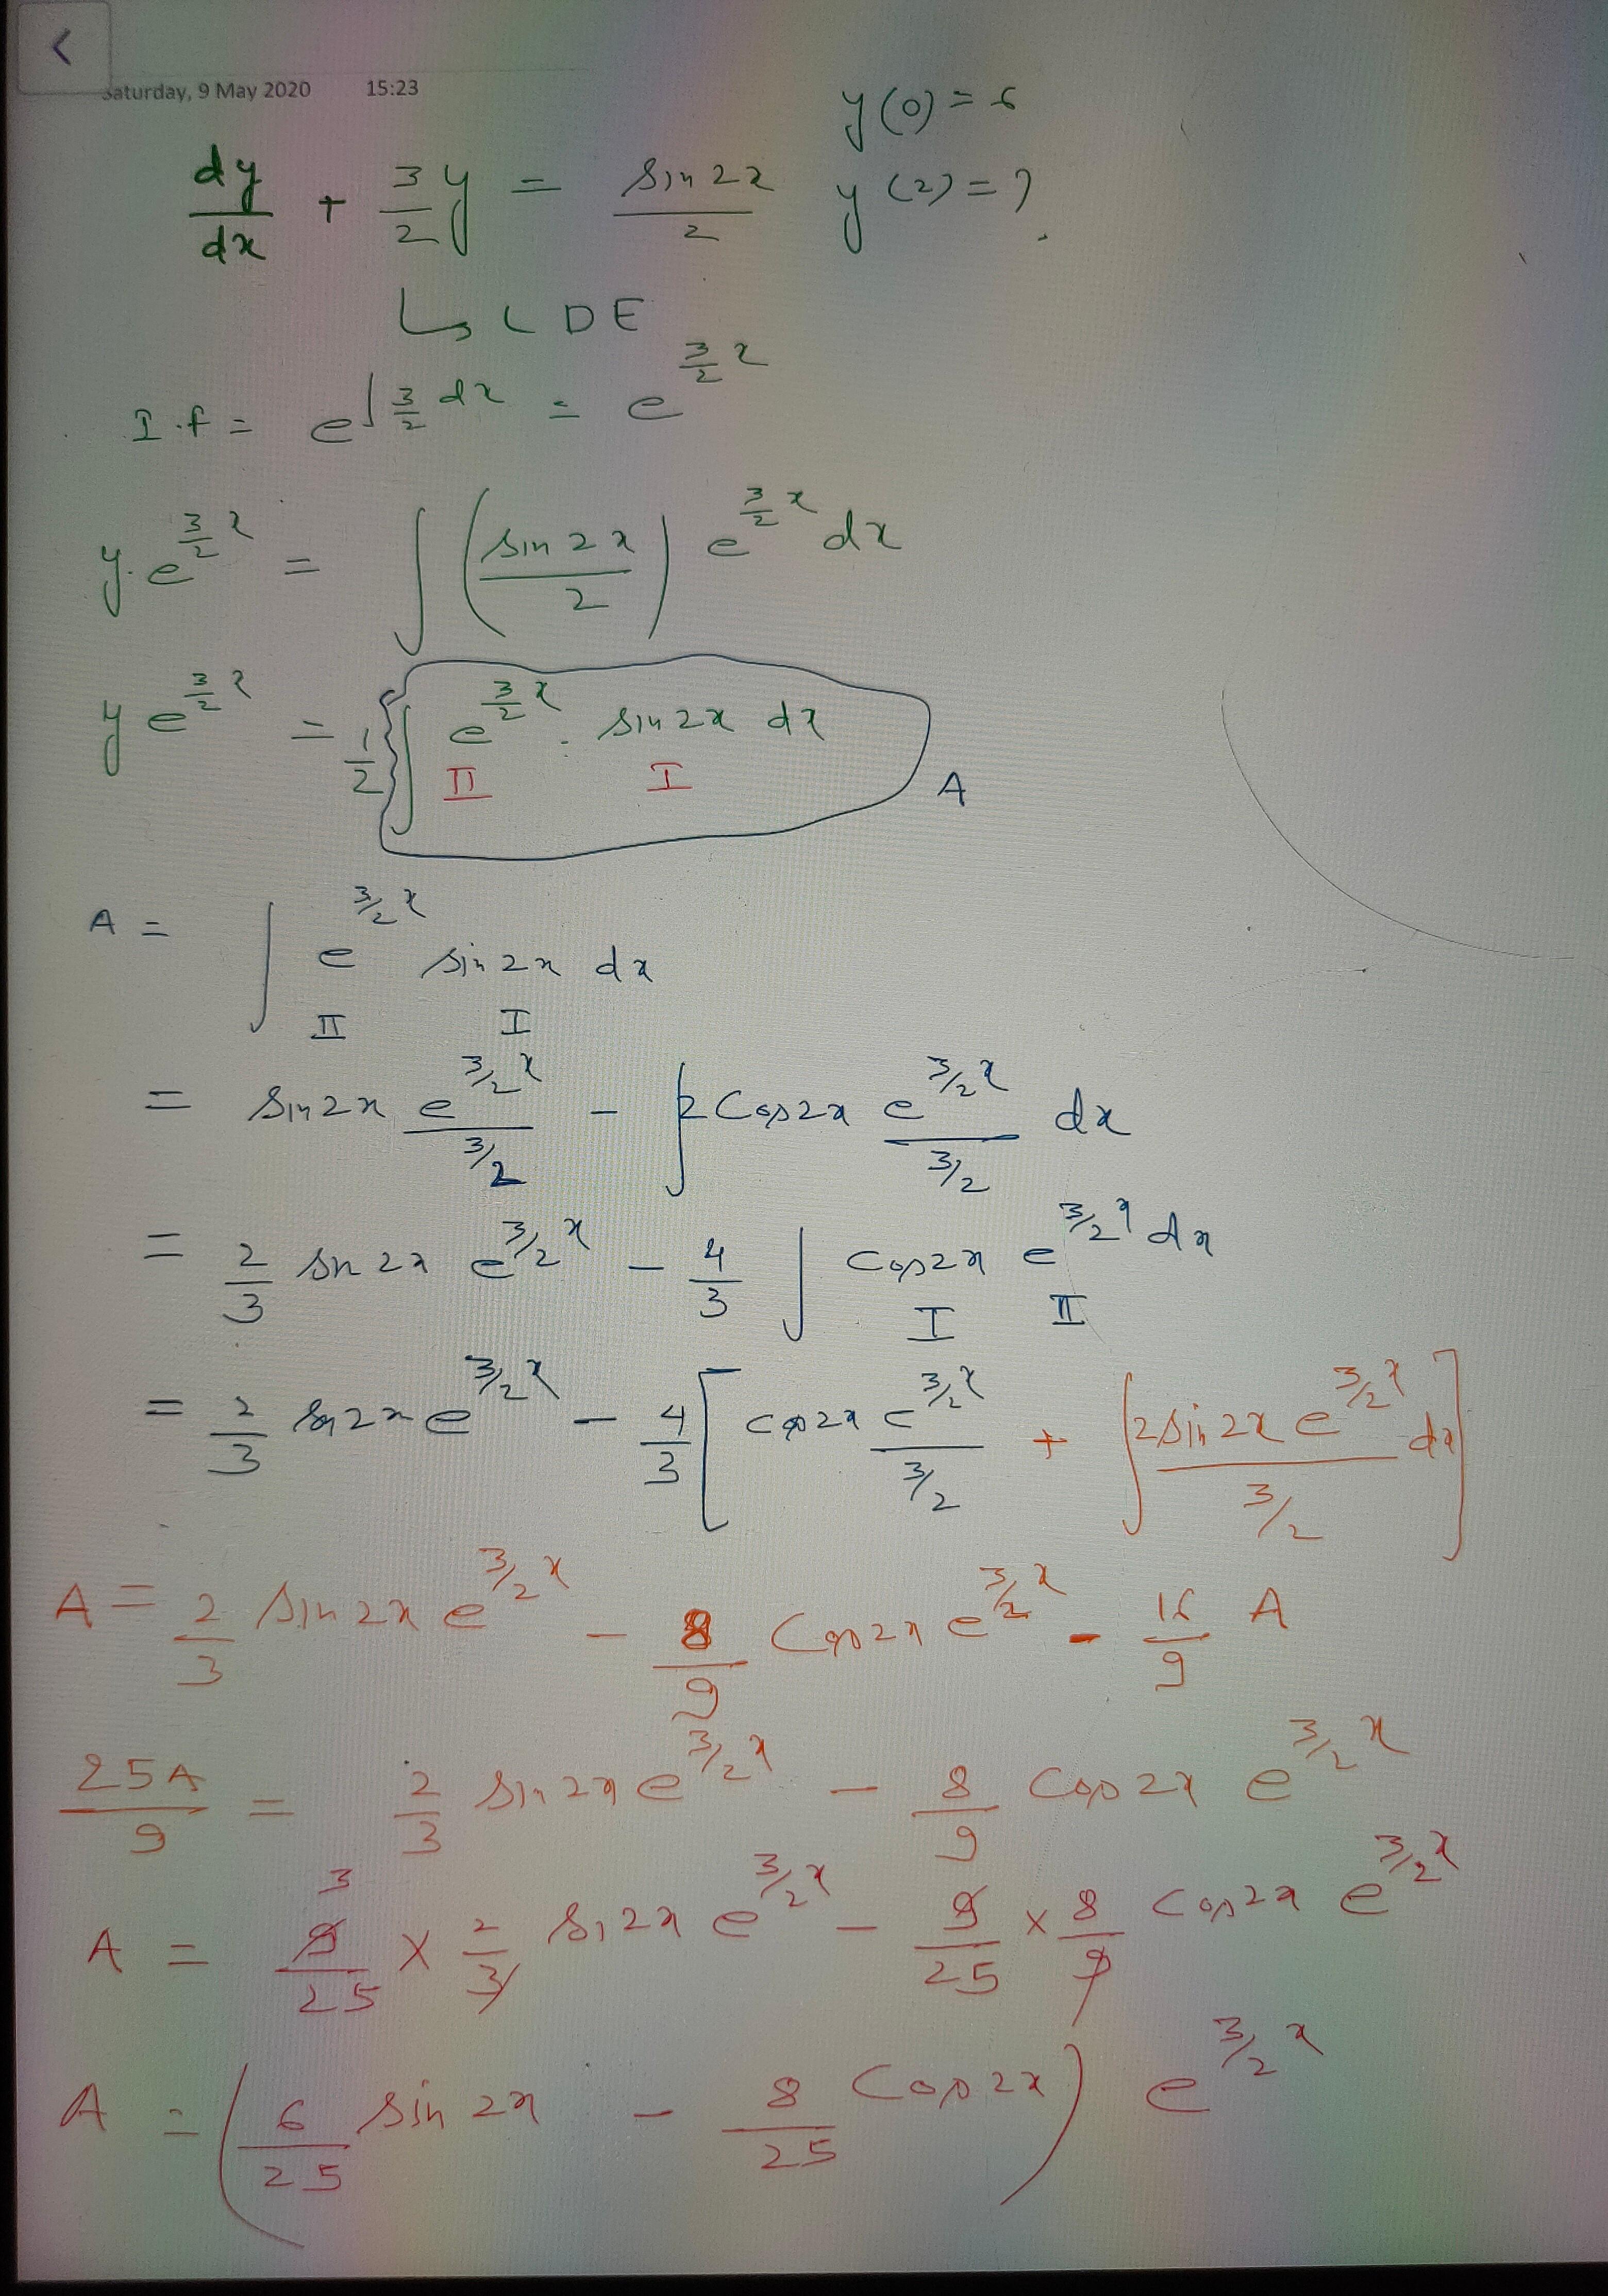 Saturday, 9 May 2020 15:23
y(0) = 6
dy/dx + 3/2 y = sin 2x / 2 y(2) = ?
↳ LDE
I.f = e^∫ 3/2 dx = e^(3/2 x)
y. e^(3/2 x) = ∫ (sin 2x / 2) e^(3/2 x) dx
y e^(3/2 x) = 1/2 { ∫ e^(3/2 x) . sin 2x dx A
II I
A = ∫ e^(3/2 x) sin 2x dx
II I
= sin 2x e^(3/2 x) / (3/2) - ∫ 2 Cos 2x e^(3/2 x) / (3/2) dx
= 2/3 sin 2x e^(3/2 x) - 4/3 ∫ Cos 2x e^(3/2 x) dx
I II
= 2/3 sin 2x e^(3/2 x) - 4/3 [ cos 2x e^(3/2 x) / (3/2) + ∫ 2 sin 2x e^(3/2 x) / (3/2) dx ]
A = 2/3 sin 2x e^(3/2 x) - 8/9 Cos 2x e^(3/2 x) - 16/9 A
25A/9 = 2/3 sin 2x e^(3/2 x) - 8/9 Cos 2x e^(3/2 x)
3
A = 9/25 × 2/3 sin 2x e^(3/2 x) - 9/25 × 8/9 Cos 2x e^(3/2 x)
A = ( 6/25 sin 2x - 8/25 Cos 2x ) e^(3/2 x)